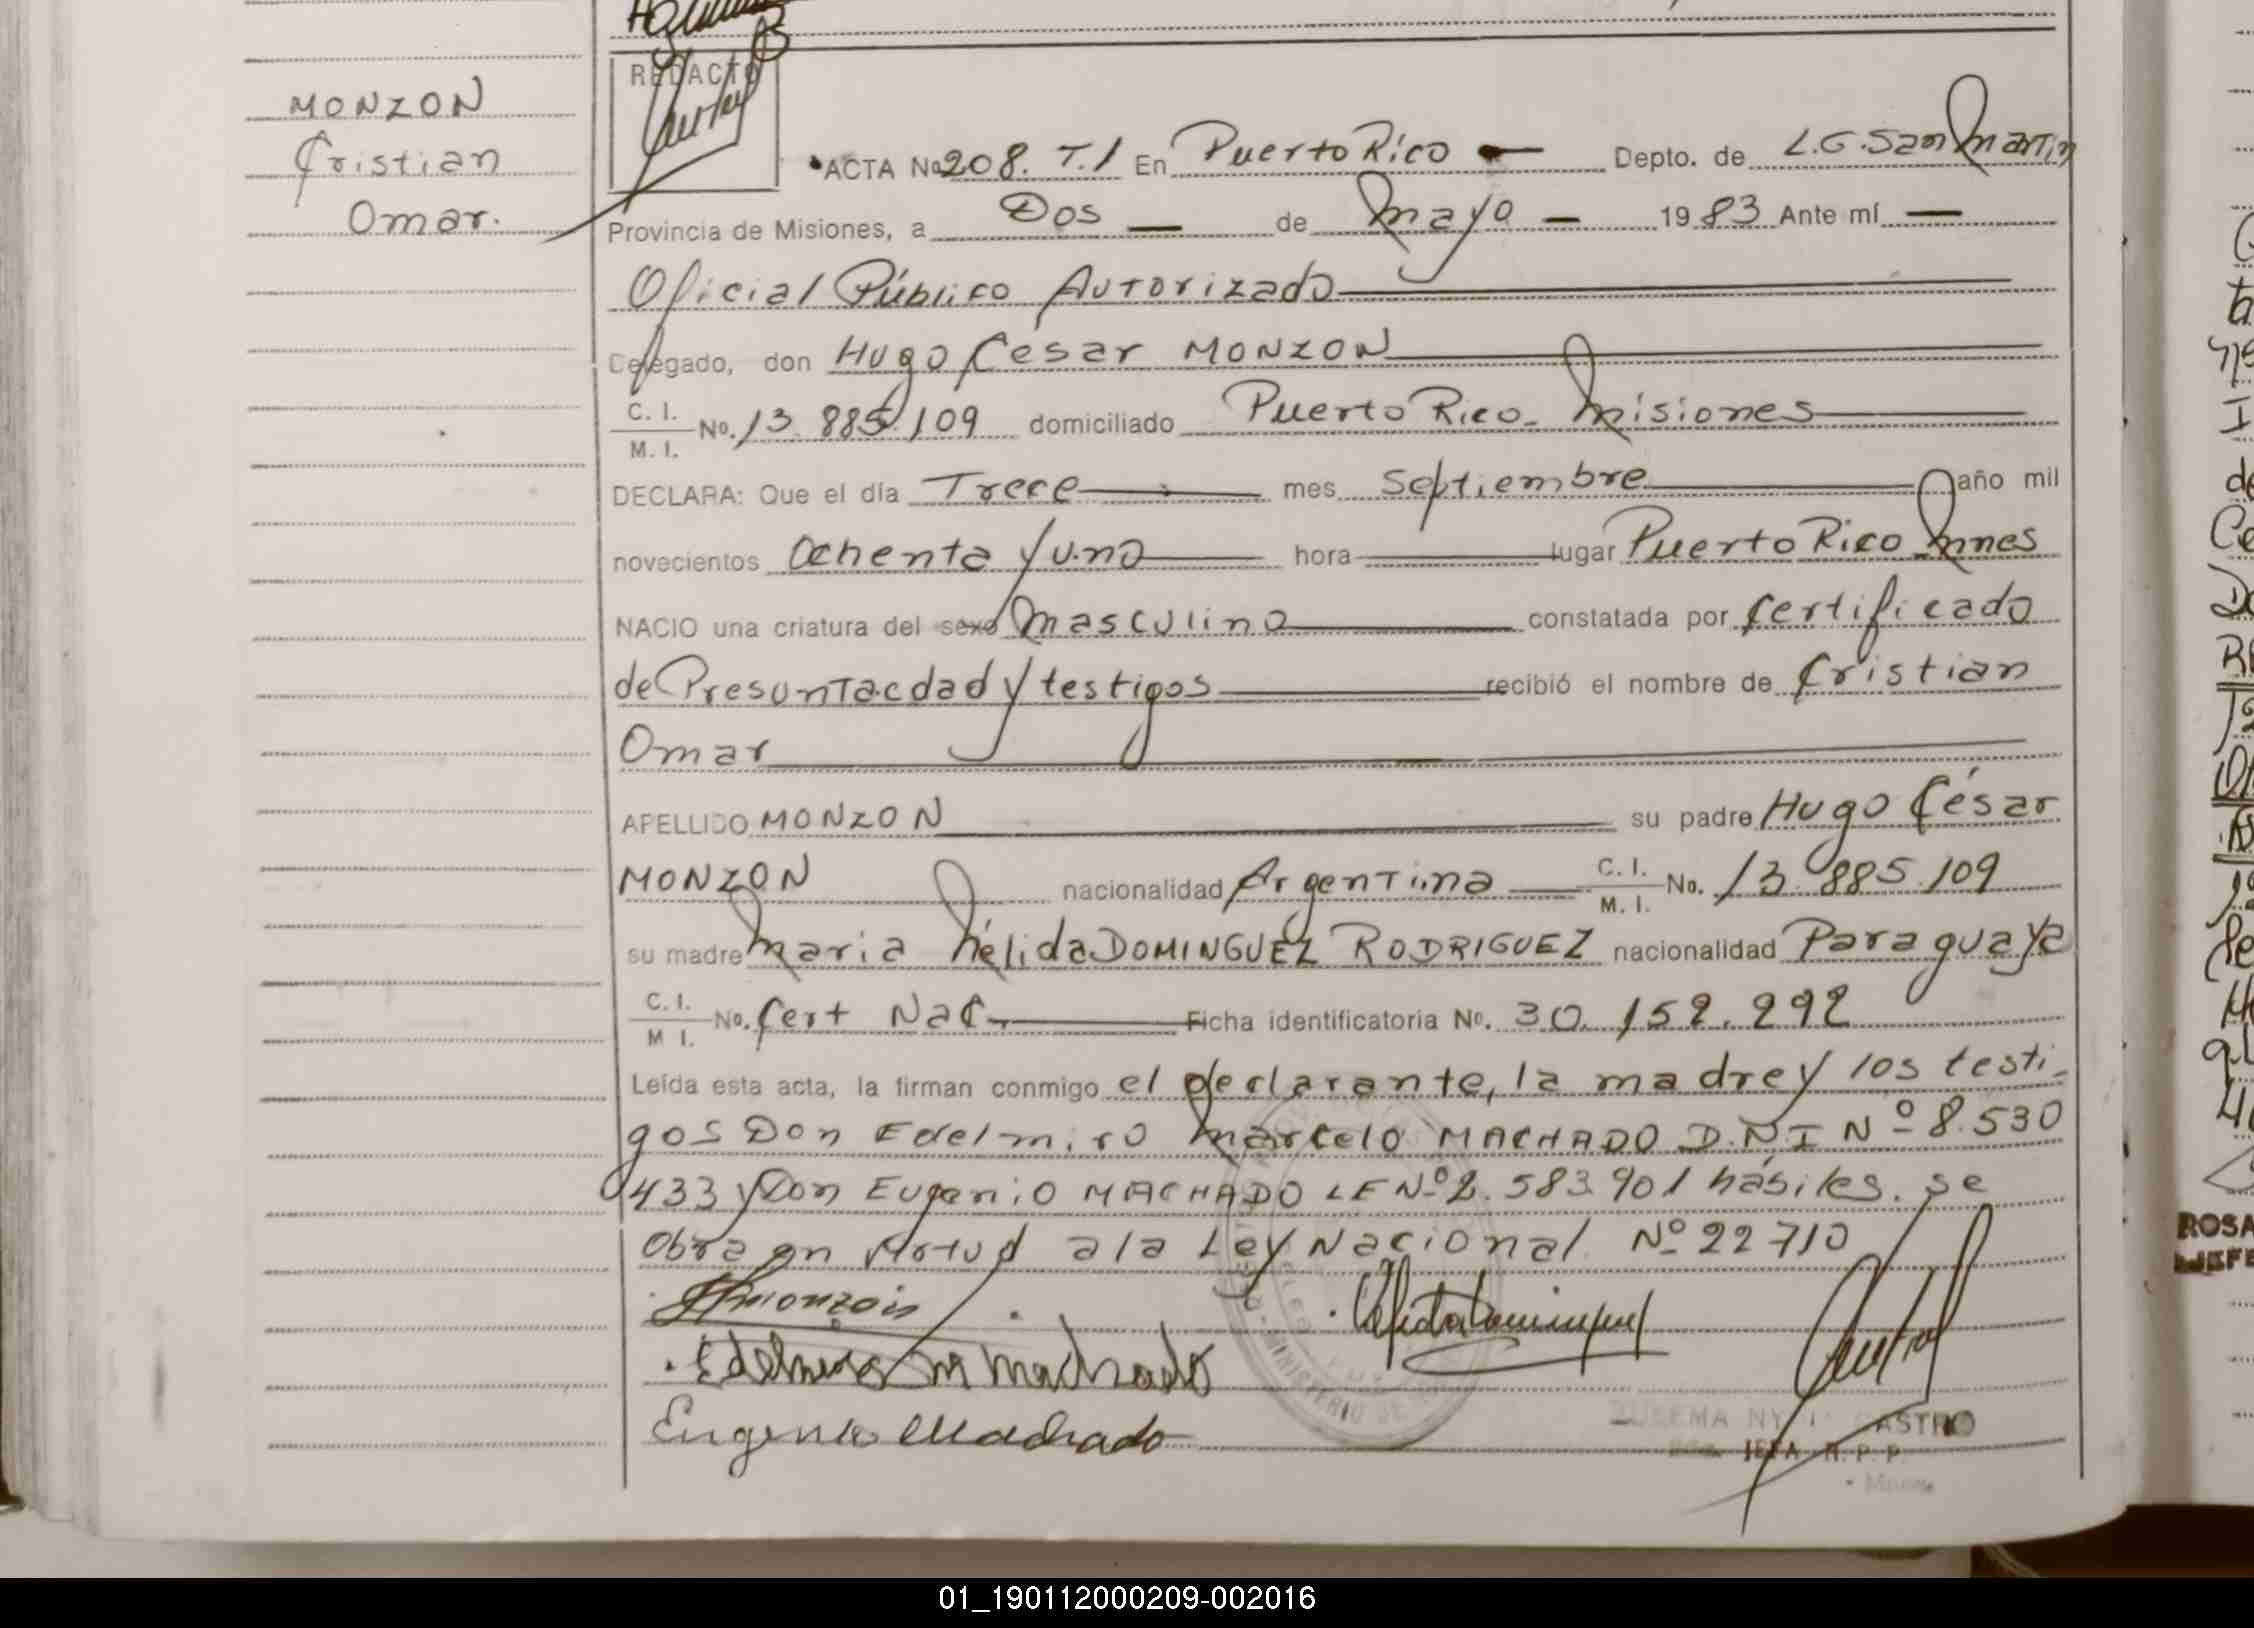 REDACTO
MONZON
Cristian
Omar.
ACTA No 208. T.1 En Puerto Rico — Depto. de L.G. San Martin
Provincia de Misiones, a Dos — de Mayo — 1983 Ante mí —
Oficial Público Autorizado
Delegado, don Hugo César MONZON
C. I.
M. I. No. 13.885.109 domiciliado Puerto Rico - Misiones
DECLARA: Que el día Trece mes Septiembre año mil
novecientos Ochenta y uno hora lugar Puerto Rico Mnes
NACIO una criatura del sexo Masculino constatada por Certificado
de Presuntacdad y testigos recibió el nombre de Cristian
Omar
APELLIDO MONZON su padre Hugo César
MONZON nacionalidad Argentina C. I.
M. I. No. 13.885.109
su madre Maria Nélida DOMINGUEZ RODRIGUEZ nacionalidad Paraguaya
C. I.
M I. No. Cert Nac. Ficha identificatoria No. 30.152.292
Leída esta acta, la firman conmigo el declarante, la madre y los testi-
gos Don Edelmiro Marcelo MACHADO D.N.I Nº 8.530
433 y Don Eugenio MACHADO LE Nº 2.583.901 hábiles. se
Obra en virtud a la Ley Nacional Nº 22710
Hmonzon
Edelmiro M Machado
Eugenio Machado
CASTRO
JEFA R. P. P.
ROSA
JEFE
01_190112000209-002016